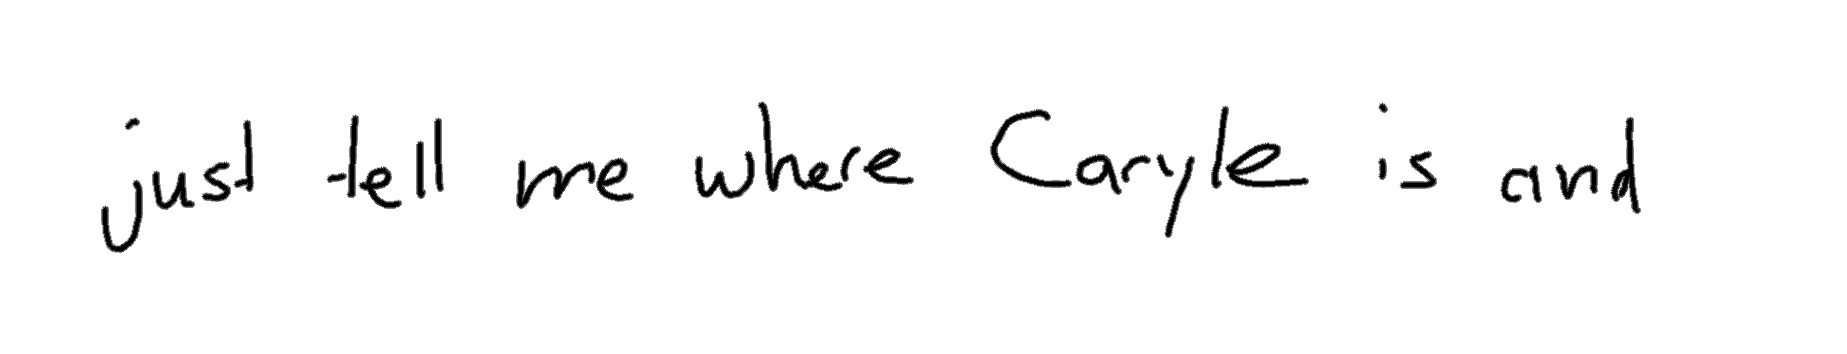 just tell me where Caryle is and